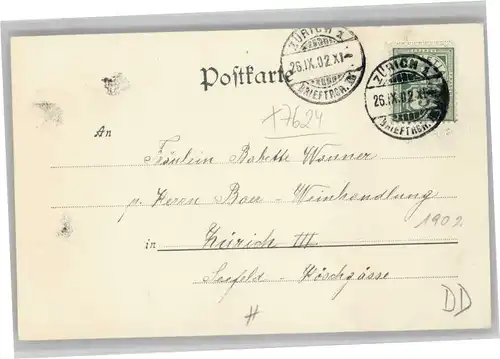 ZÜRICH 1
26.IX.02.XI
BRIEFTRÄG.
ZÜRICH 1
26.IX.02.XI
BRIEFTRÄG.
5
Postkarte
x7624
An
Fräulein Babette Wanner
p. Herrn Baer - Weinhandlung
1902
in Zürich III
Seefeld - Höschgasse
#
DD